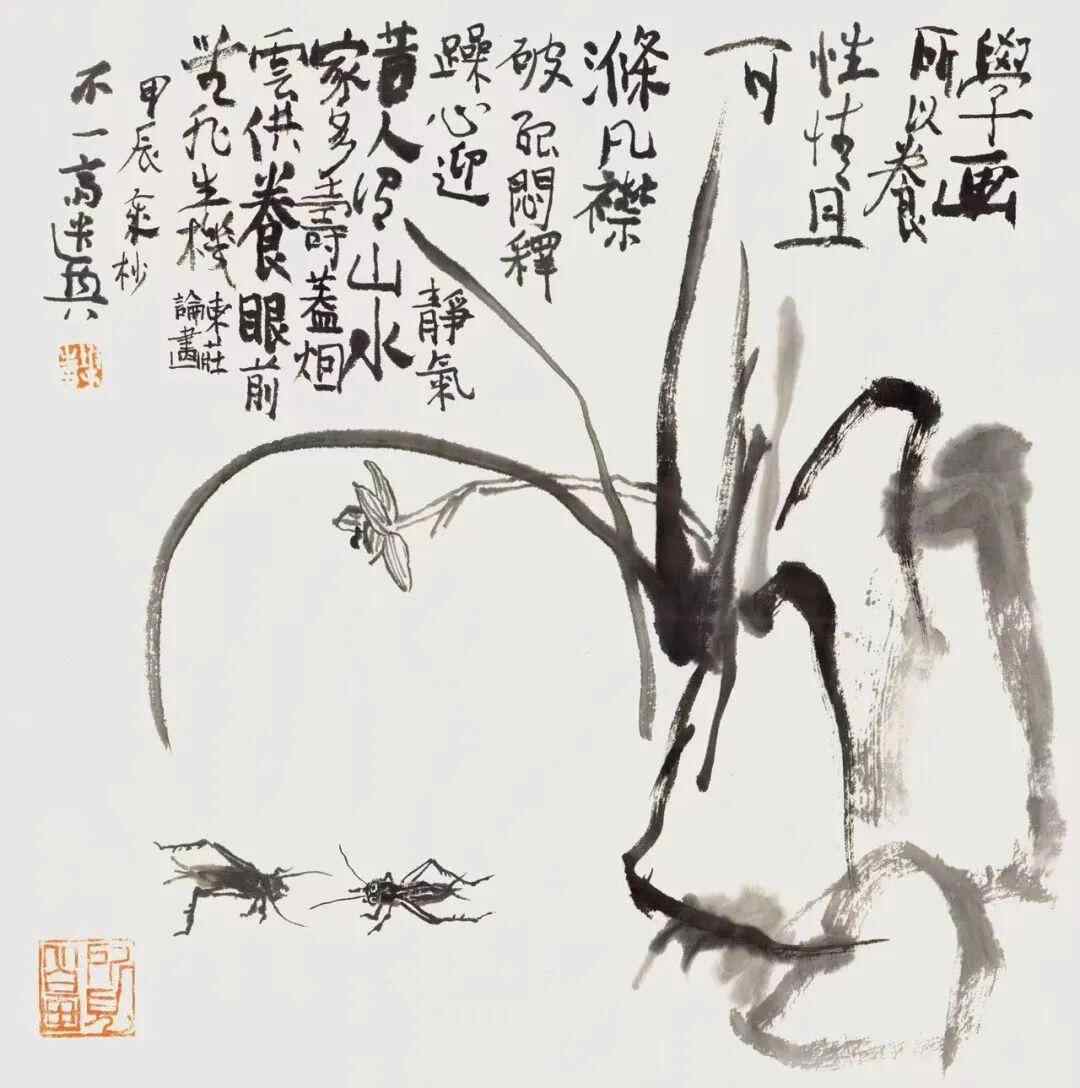 學画
所以養
性情且
可
滌凡襟
破孤悶釋
躁心迎
靜氣
昔人谓山水
家多壽蓋烟
雲供養眼前
無非生機
東莊
論畫
甲辰 杪
不一高
所見